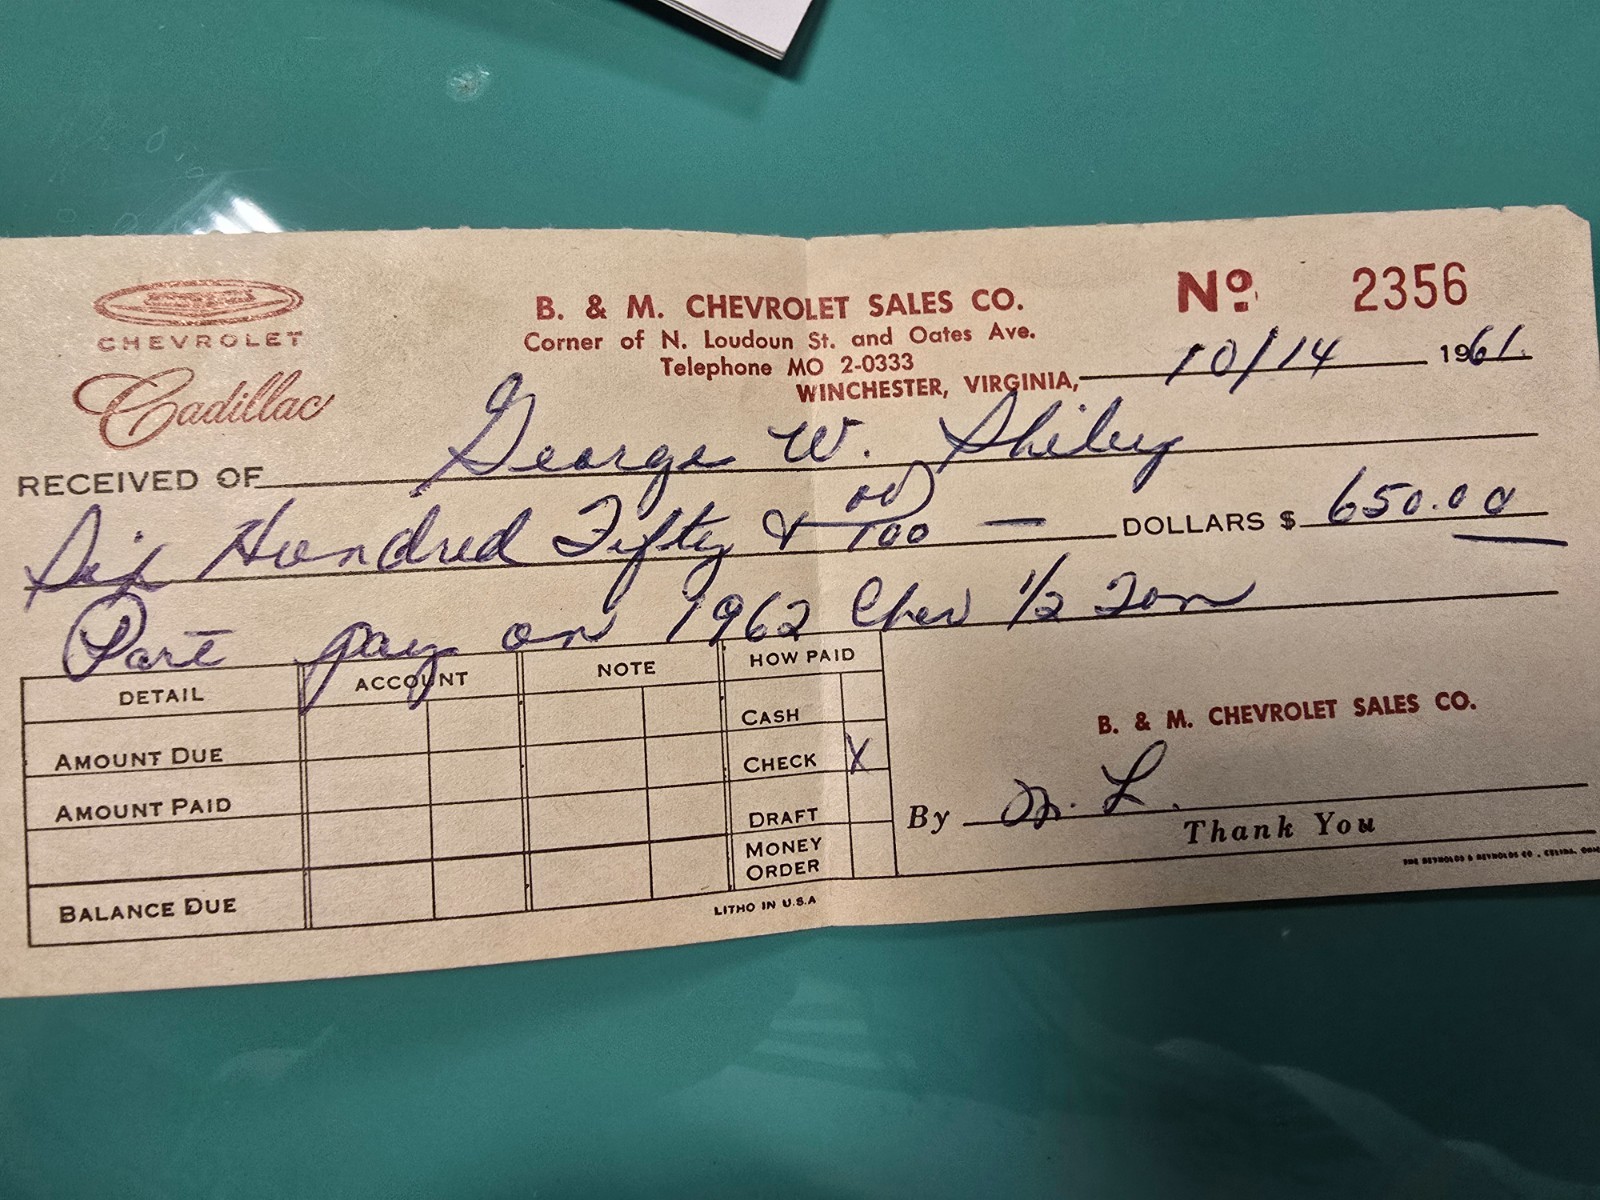 CHEVROLET
Cadillac
B. & M. CHEVROLET SALES CO.
Corner of N. Loudoun St. and Oates Ave.
Telephone MO 2-0333
WINCHESTER, VIRGINIA, 10/14 1961.
Nº 2356
RECEIVED OF George W. Shiley
Six Hundred Fifty & 00/100 — DOLLARS $ 650.00
Part pay on 1962 Chev 1/2 Ton
DETAIL ACCOUNT NOTE HOW PAID
CASH
AMOUNT DUE CHECK X
AMOUNT PAID DRAFT
MONEY ORDER
BALANCE DUE
LITHO IN U.S.A
B. & M. CHEVROLET SALES CO.
By M. L.
Thank You
THE REYNOLDS & REYNOLDS CO., CELINA, OHIO